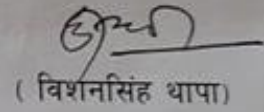 ( विशनसिंह थापा)